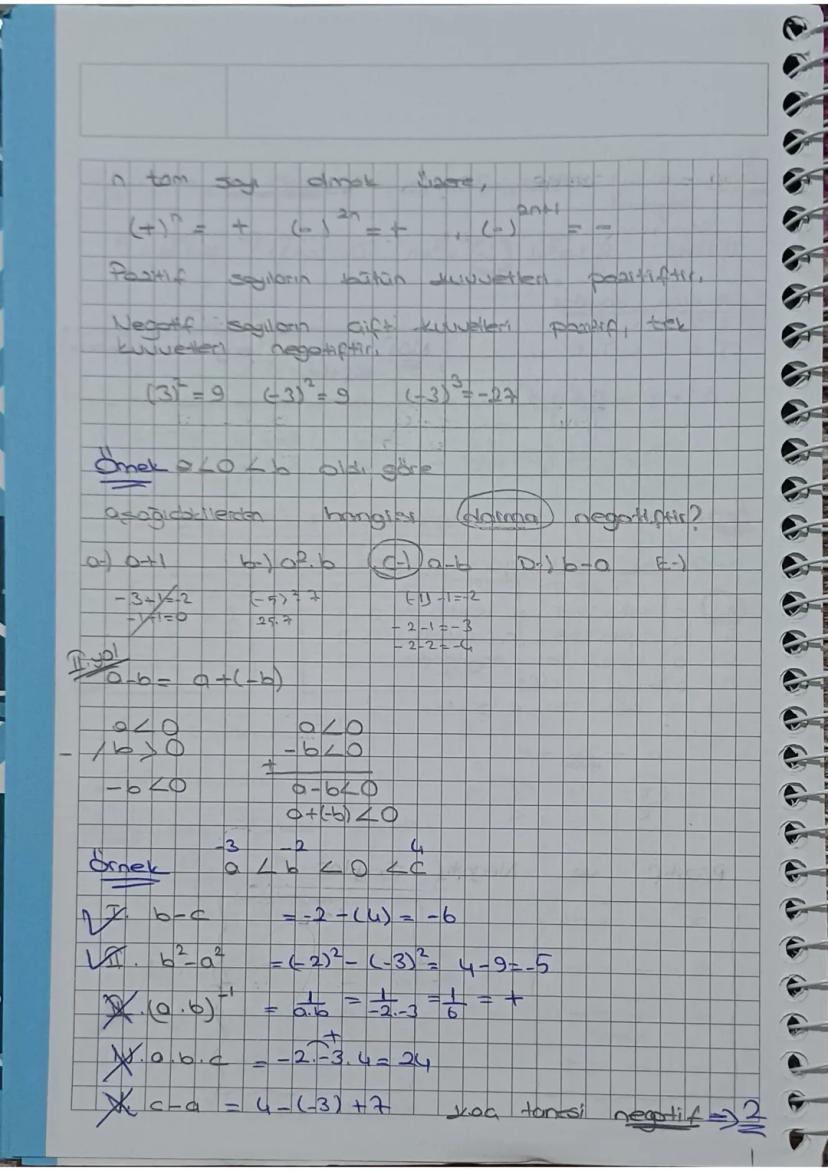 n tam sayı olmak üzere,
(+)ⁿ = + (-)²ⁿ = + , (-)²ⁿ⁺¹ = -
Pozitif sayıların bütün kuvvetleri pozitiftir.
Negatif sayıların çift kuvvetleri pozitif, tek
kuvvetleri negatiftir.
(3)² = 9 (-3)² = 9 (-3)³ = -27
Örnek a<0<b göre
aşağıdakilerden hangisi daima negatiftir?
a-) a+1 b-) a².b C-) a-b D-) b-a E-)
-3+1=-2 (-5)².7 (-1)-1=-2
-1+1=0 25.7 -2-1=-3
-2-2=-4
II.yol
a-b = a+(-b)
a<0 a<0
- / b>0 -b<0
+
-b<0 a-b<0
a+(-b)<0
-3 -2 4
Örnek a < b < 0 < c
I. b-c = -2-(4) = -6
II. b²-a² = (-2)²-(-3)² = 4-9=-5
(a.b)⁻¹ = 1/a.b = 1/-2.-3 = 1/6 = +
+
a.b.c = -2.-3.4=24
c-a = 4-(-3)+7 kaç tanesi negatif ⇒ 2